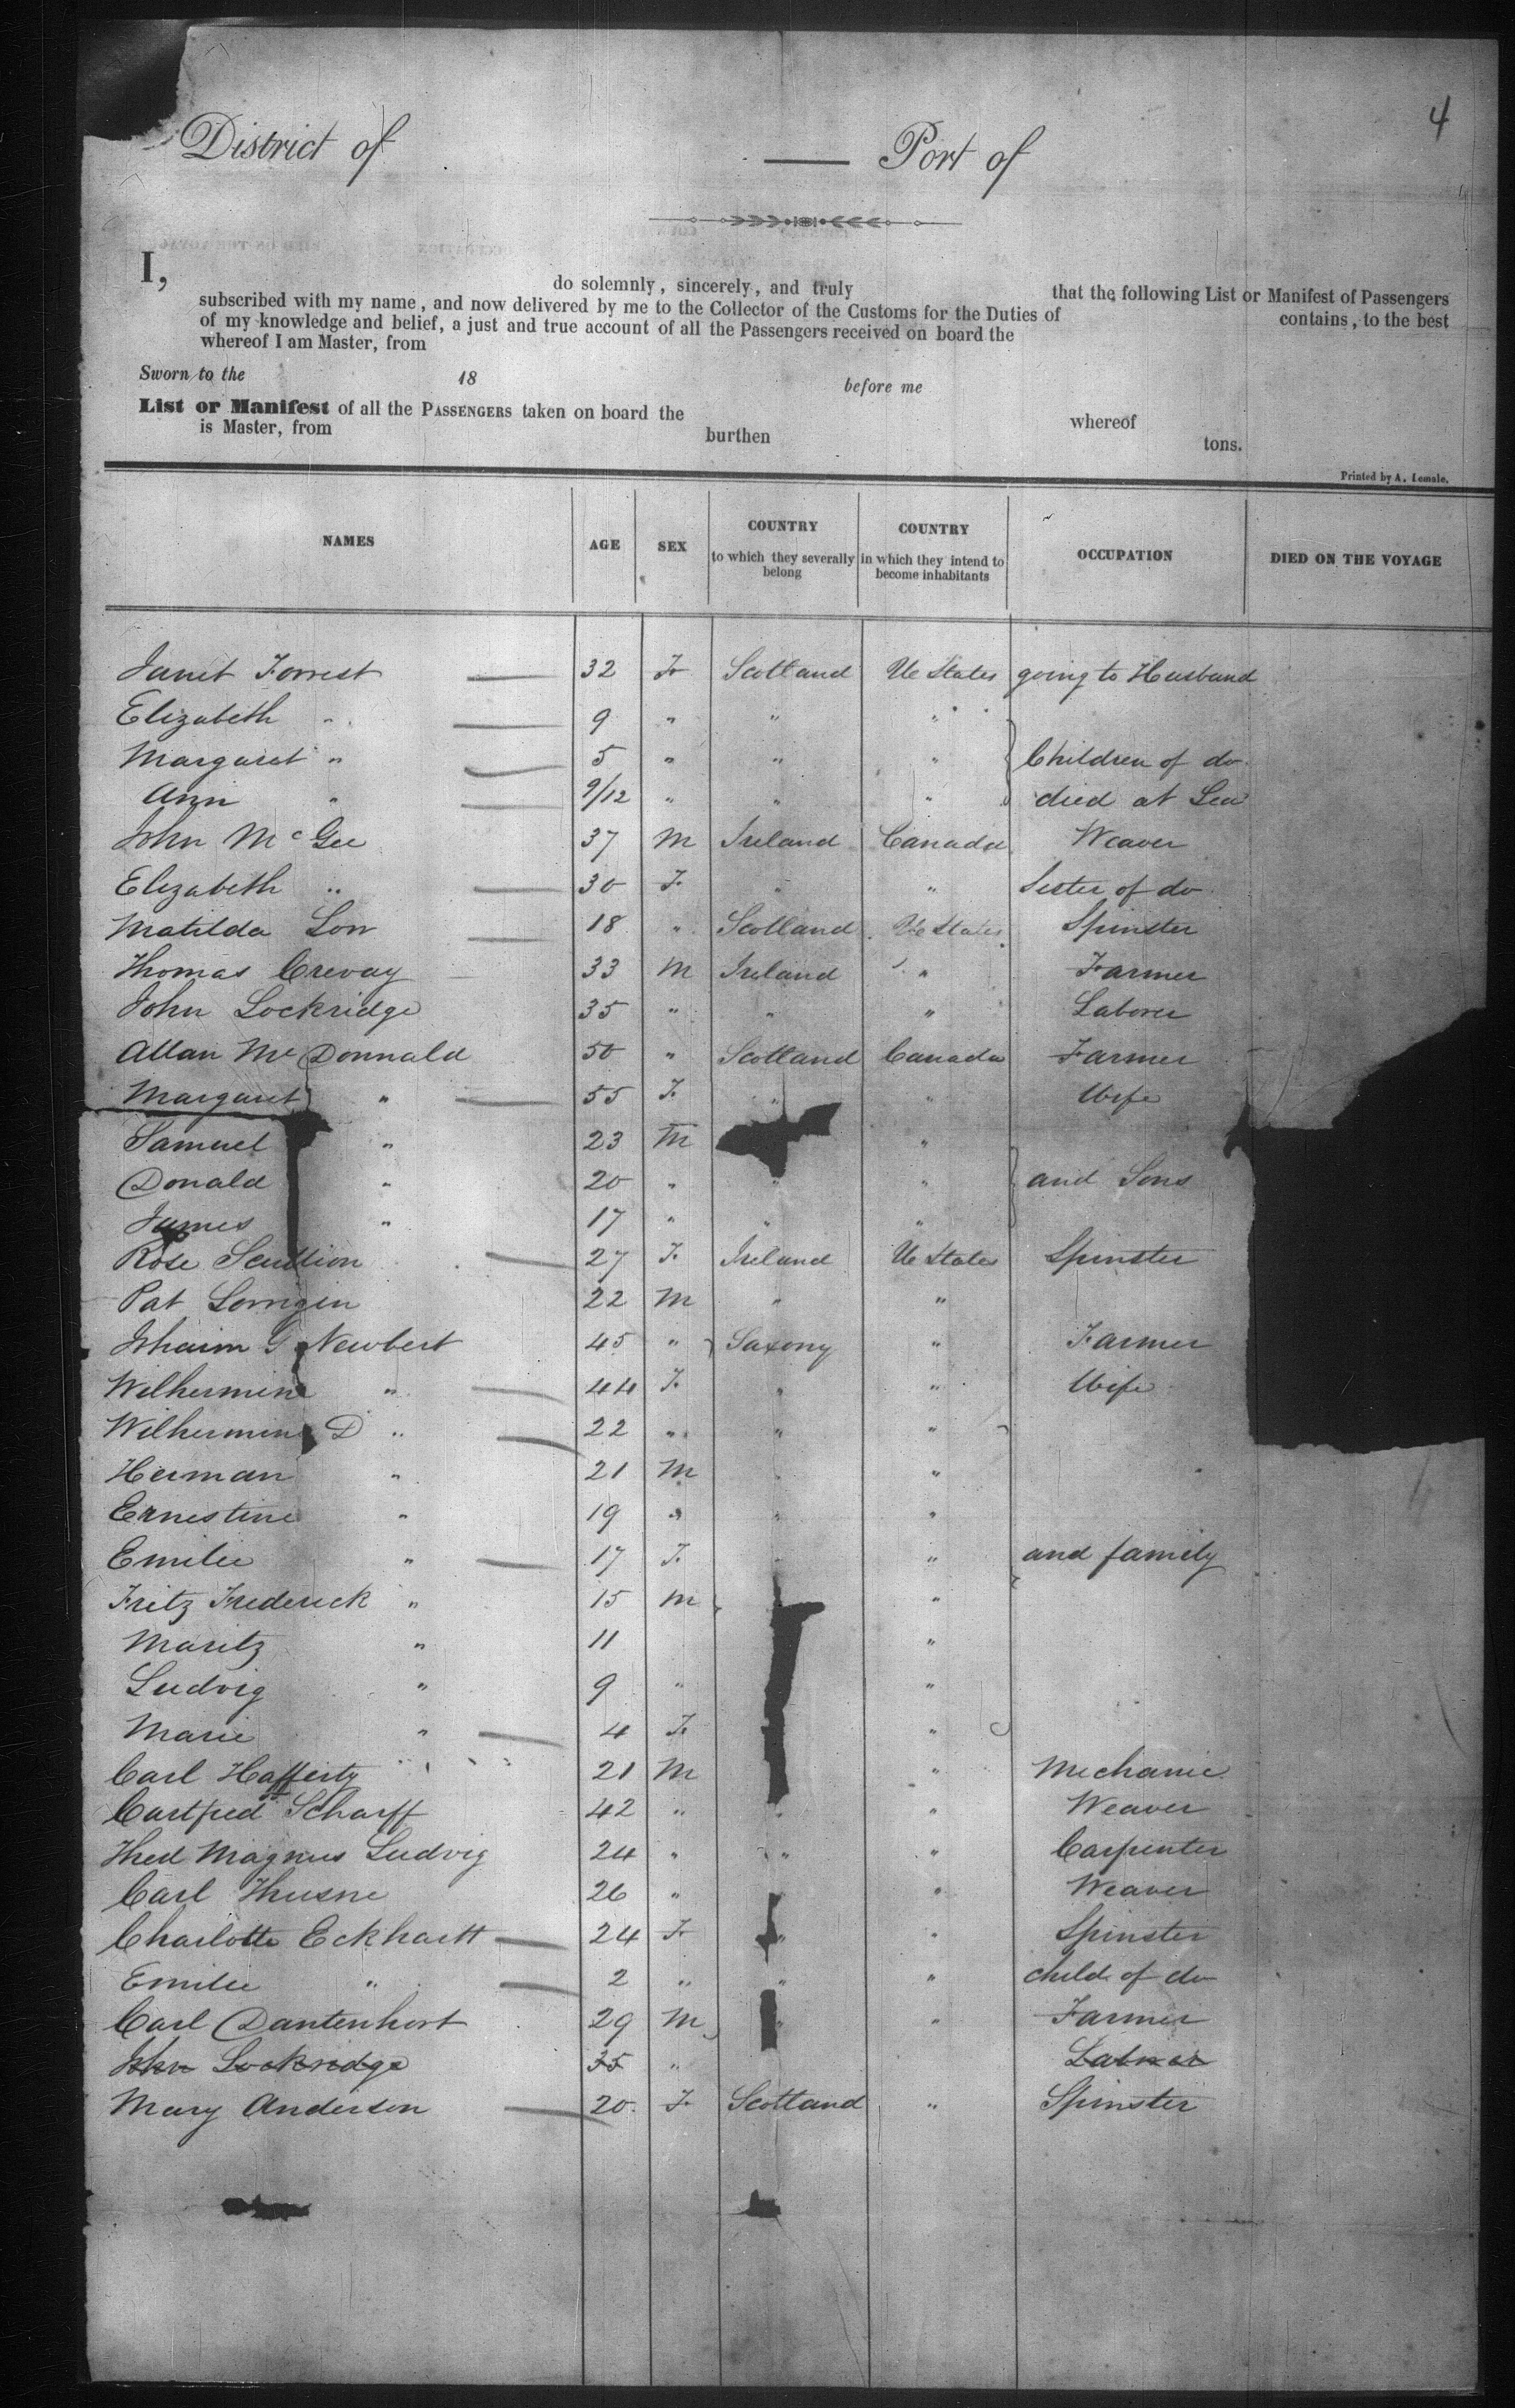 4
District of — Port of
I, do solemnly, sincerely, and truly that the following List or Manifest of Passengers
subscribed with my name, and now delivered by me to the Collector of the Customs for the Duties of contains, to the best
of my knowledge and belief, a just and true account of all the Passengers received on board the
whereof I am Master, from
Sworn to the 18 before me
List or Manifest of all the PASSENGERS taken on board the whereof
is Master, from burthen tons.
Printed by A. Lemale.
NAMES AGE SEX COUNTRY to which they severally belong COUNTRY in which they intend to become inhabitants OCCUPATION DIED ON THE VOYAGE
Janet Forrest 32 F Scotland Ue States going to Husband
Elizabeth " 9 " " "
Margaret " 5 " " " Children of do
Ann " 9/12 " " " died at Sea
John McGee 37 M Ireland Canada Weaver
Elizabeth " 30 F. " " Sister of do
Matilda Low 18 " Scotland Ue States Spinster
Thomas Crevay 33 M Ireland " Farmer
John Lockridge 35 " " " Laborer
Allan Mc Donnald 50 " Scotland Canada Farmer
Margaret " 55 F. " " Wife
Samuel " 23 M "
Donald " 20 " " " and Sons
James " 17 " " "
Rose Scullion 27 F. Ireland Ue States Spinster
Pat 22 M " "
G Newbert 45 " Saxony " Farmer
Wilhermine " 44 F. " " Wife
Wilhermine D " 22 " " "
Herman " 21 M "
Ernestine " 19 " " "
Emilie " 17 F. " and family
Fritz Frederick " 15 M "
Maritz " 11 "
Ludvig " 9 " "
Marie " 4 F. "
Carl Hafferty 21 M " Mechanic
Scharff 42 " " " Weaver
Magnus Ludvig 24 " " " Carpenter
Carl 26 " " Weaver
Charlotte Eckhartt 24 F " " Spinster
Emilie " 2 " " " child of do
Carl Dantenhort 29 M " " Farmer
John Lockredge 35 " Laborer
Mary Anderson 20 F. Scotland " Spinster